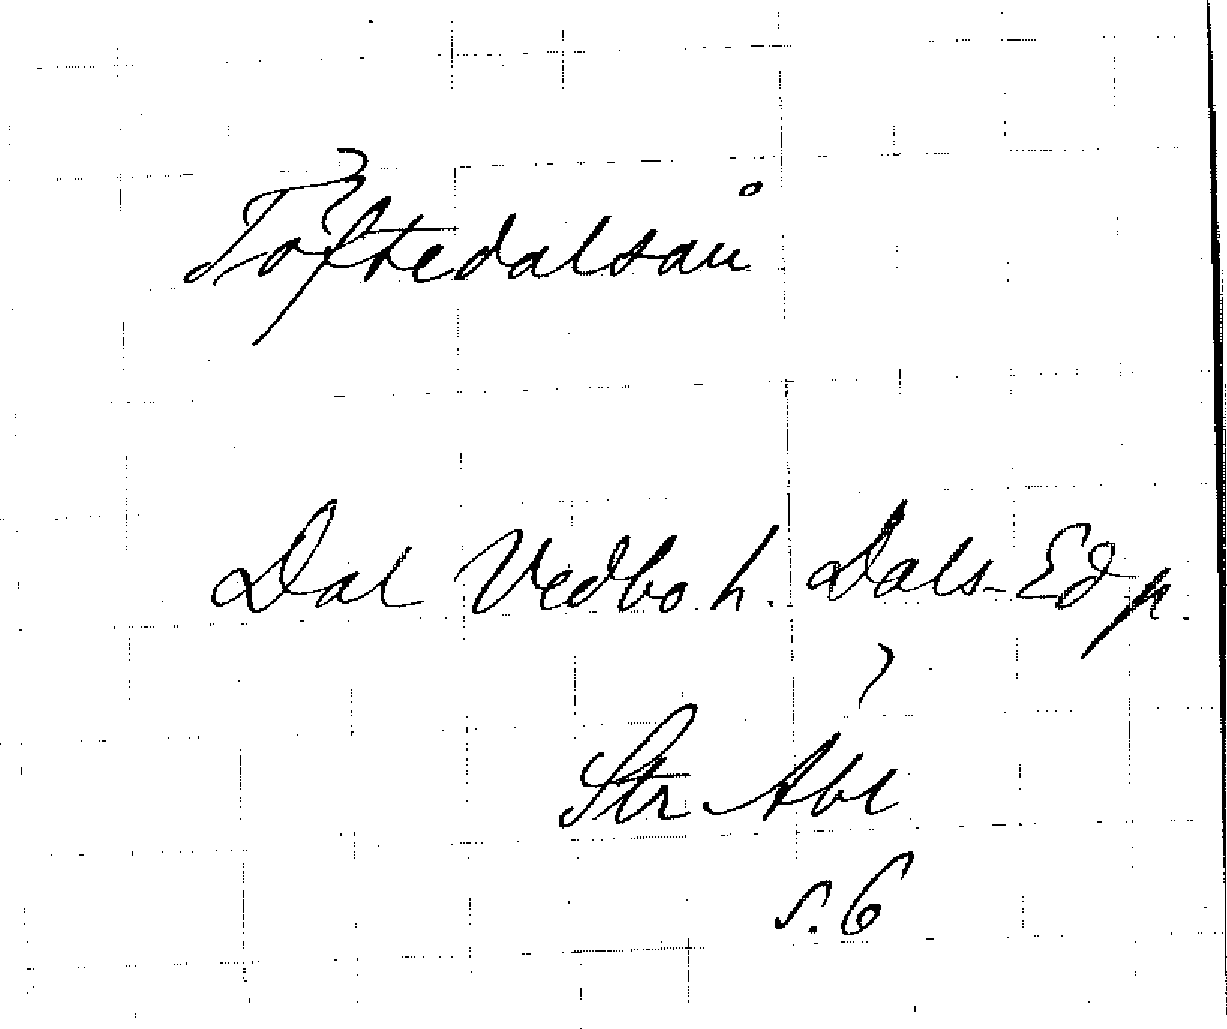 Töftedalsån
Dal Vedbo h. Dals-Ed p.
Str Abl
s. 6